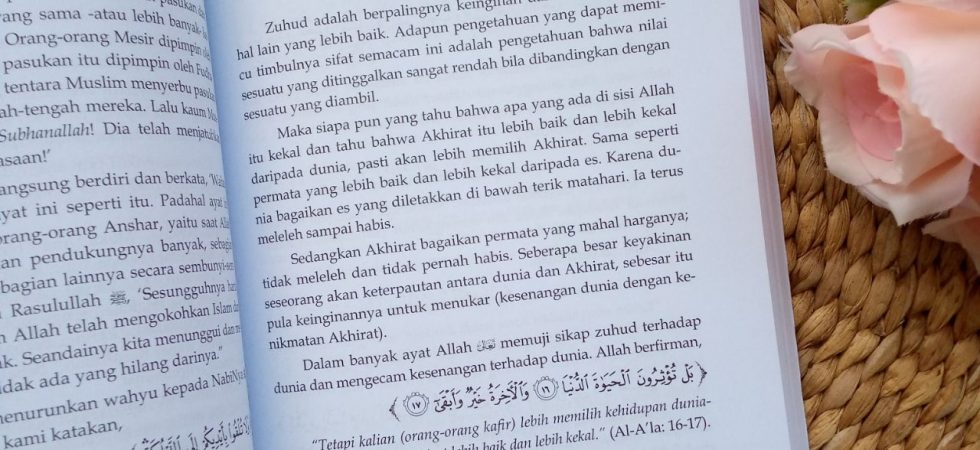 pasukan
yang sama -atau lebih banyak-
Orang-orang Mesir dipimpin oleh
pasukan itu dipimpin oleh
tentara Muslim menyerbu
ah-tengah mereka. Lalu kaum
Subhanallah! Dia telah
asaan!'
angsung berdiri dan berkata,
yat ini seperti itu. Padahal ayat
orang-orang Anshar, yaitu saat
an pendukungnya banyak,
bagian lainnya secara
Rasulullah ﷺ, 'Sesungguhnya
Allah telah mengokohkan Islam
ik. Seandainya kita menunggui dan
idak ada yang hilang darinya."
menurunkan wahyu kepada
kami katakan,
Zuhud adalah berpalingnya
hal lain yang lebih baik. Adapun pengetahuan yang dapat memi-
cu timbulnya sifat semacam ini adalah pengetahuan bahwa nilai
sesuatu yang ditinggalkan sangat rendah bila dibandingkan dengan
sesuatu yang diambil.
Maka siapa pun yang tahu bahwa apa yang ada di sisi Allah
itu kekal dan tahu bahwa Akhirat itu lebih baik dan lebih kekal
daripada dunia, pasti akan lebih memilih Akhirat. Sama seperti
permata yang lebih baik dan lebih kekal daripada es. Karena du-
nia bagaikan es yang diletakkan di bawah terik matahari. Ia terus
meleleh sampai habis.
Sedangkan Akhirat bagaikan permata yang mahal harganya;
tidak meleleh dan tidak pernah habis. Seberapa besar keyakinan
seseorang akan keterpautan antara dunia dan Akhirat, sebesar itu
pula keinginannya untuk menukar (kesenangan dunia dengan ke-
nikmatan Akhirat).
Dalam banyak ayat Allah memuji sikap zuhud terhadap
dunia dan mengecam kesenangan terhadap dunia. Allah berfirman,
﴿ بَلْ تُؤْثِرُونَ الْحَيَوٰةَ الدُّنْيَا ۝١٦ وَالْآخِرَةُ خَيْرٌ وَأَبْقَىٰٓ ۝١٧ ﴾
"Tetapi kalian (orang-orang kafir) lebih memilih kehidupan dunia-
lebih baik dan lebih kekal." (Al-A'la: 16-17).